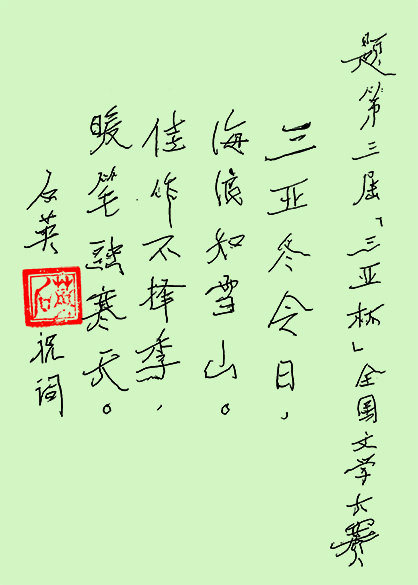 题第三届「三亚杯」全国文学大赛
三亚冬令日，
海浪知雪山。
佳作不择季，
暖笔融寒天。
石英
祝词